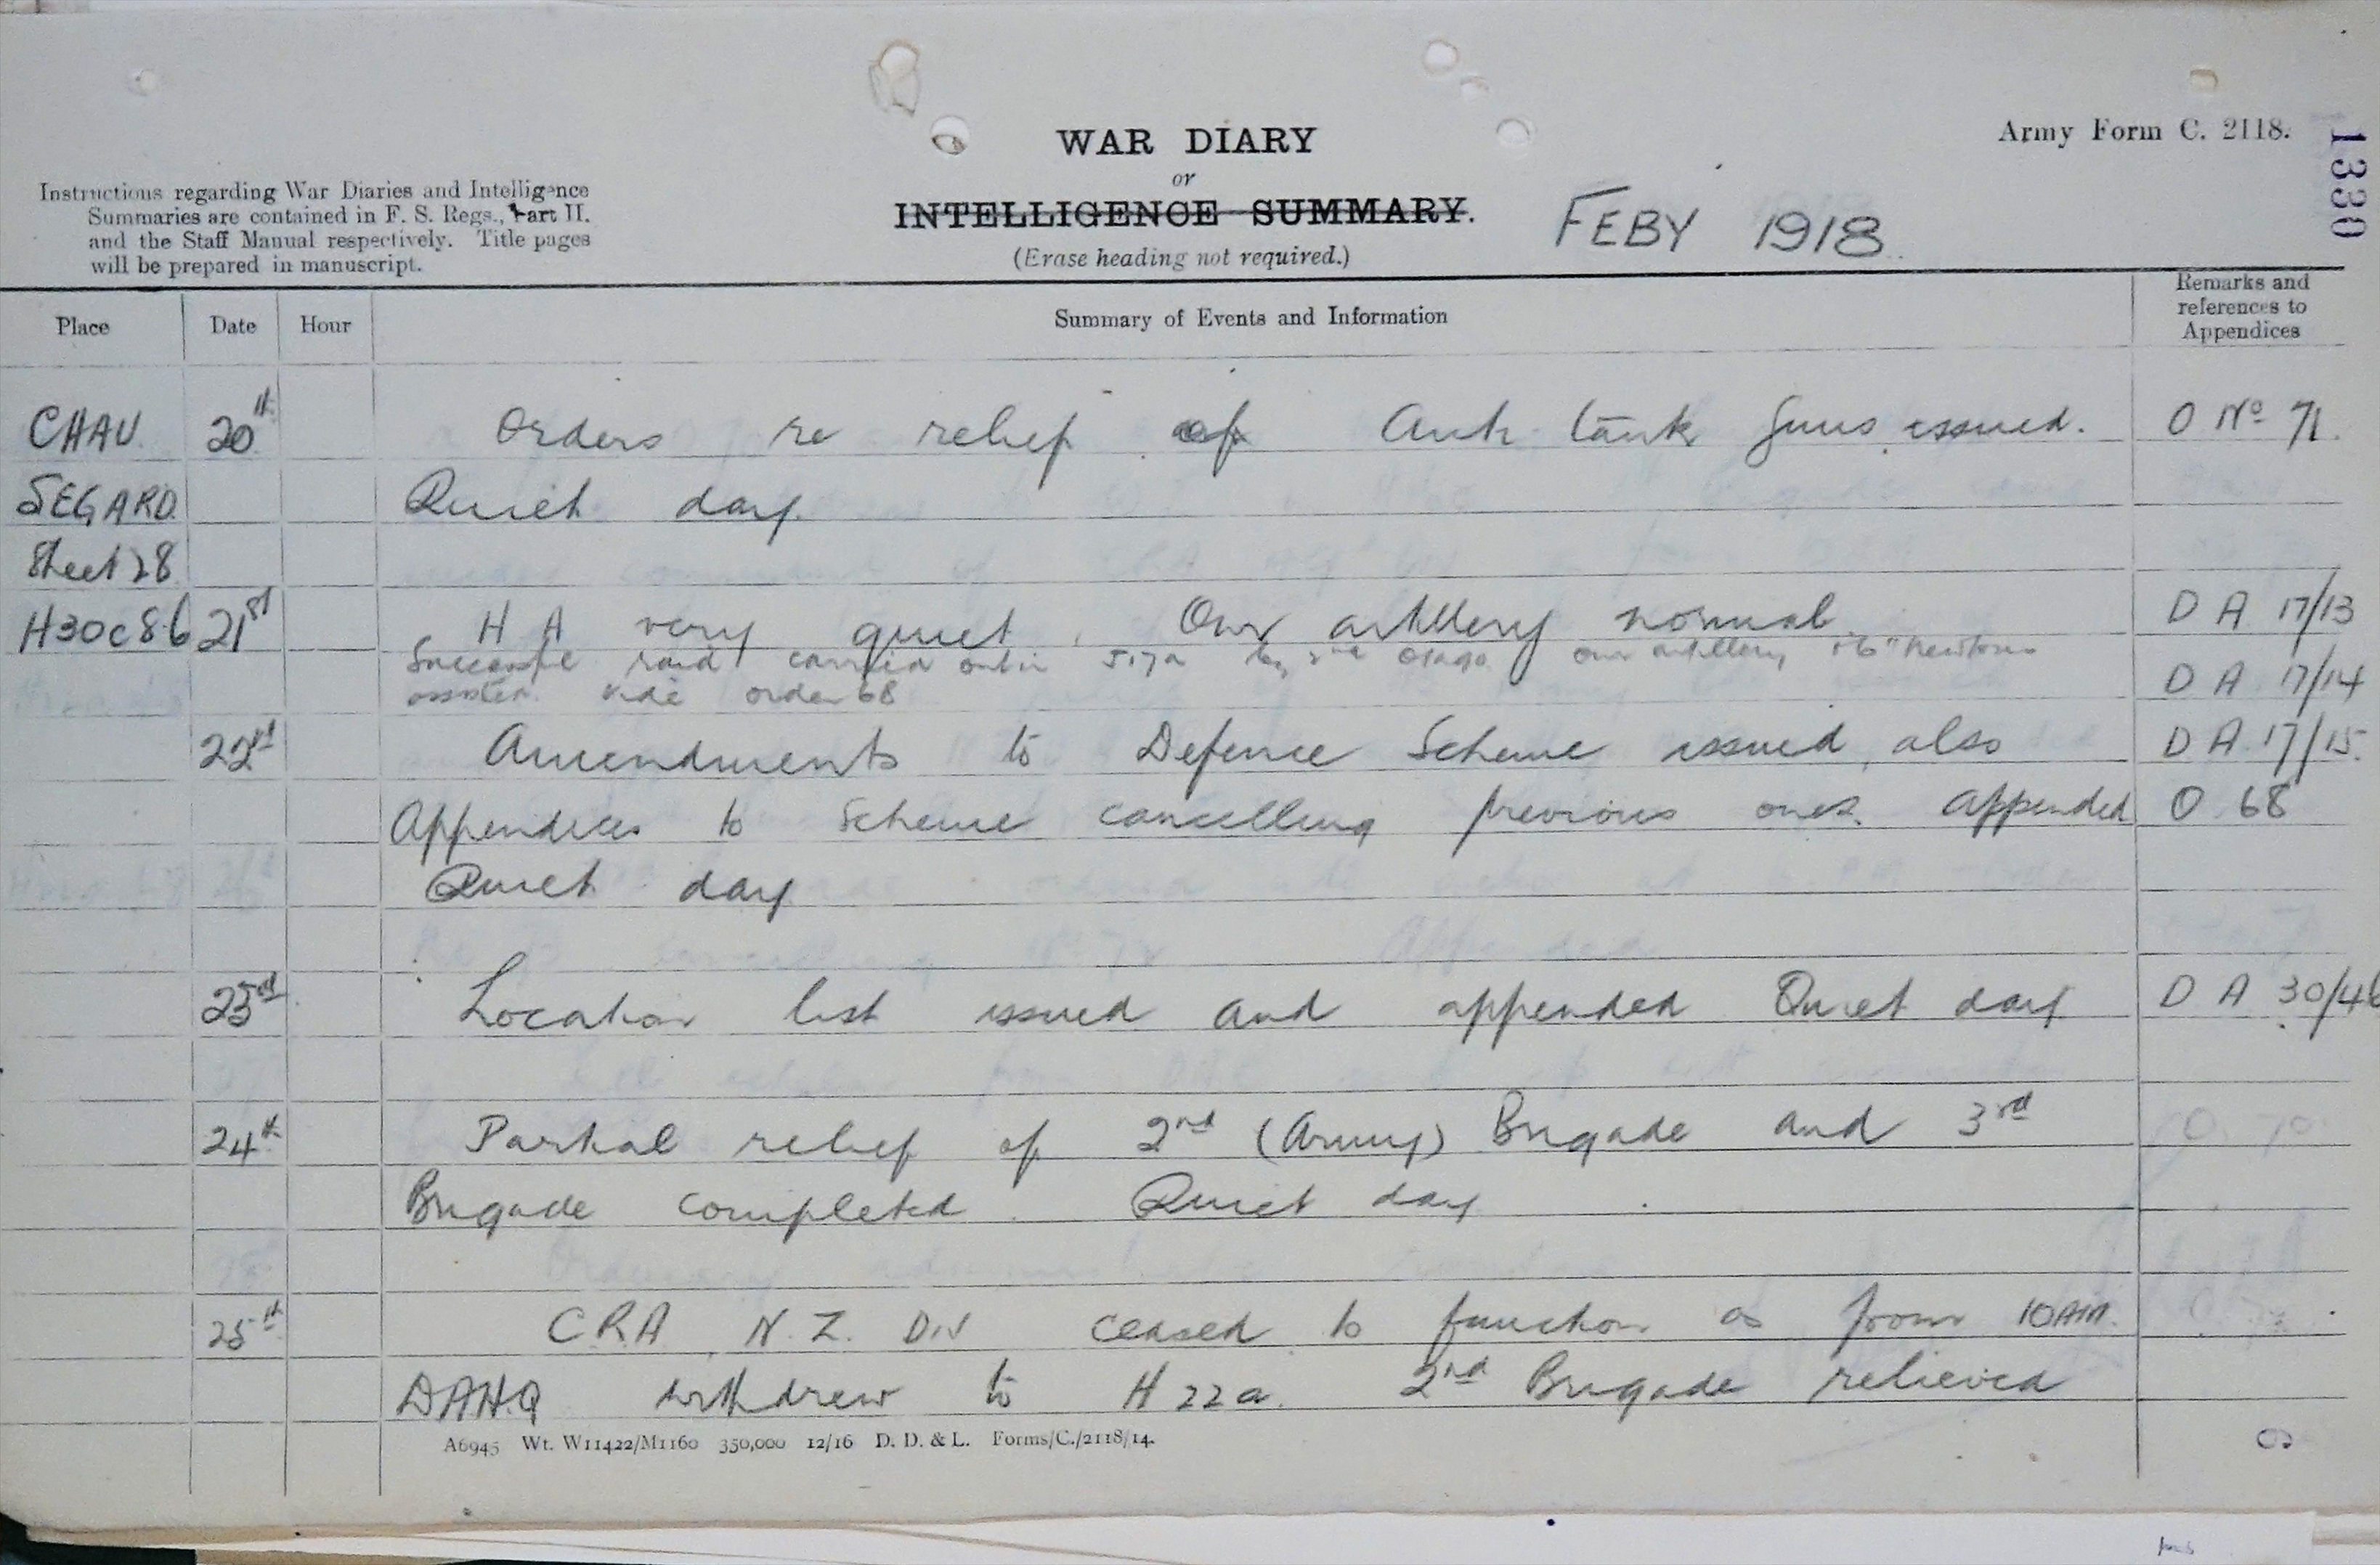 WAR DIARY
or
INTELLIGENCE SUMMARY.
(Erase heading not required.)
Army Form C. 2118.
1330
FEBY 1918
Instructions regarding War Diaries and Intelligence
Summaries are contained in F. S. Regs., Part II.
and the Staff Manual respectively. Title pages
will be prepared in manuscript.
Place Date Hour Summary of Events and Information Remarks and references to Appendices
CHAU 20th Orders re relief of Anti tank Guns issued. O No 71.
SEGARD Quiet day
Sheet 28
H30c8.6 21st H A very quiet. Our artillery normal D A 17/13
Successful raid carried out in J.17a by 2nd Otago our artillery 6" Newtons
assisted vide order 68 D A 17/14
22nd Amendments to Defence Scheme issued, also D A 17/15
Appendices to Scheme cancelling previous ones. appended O 68
Quiet day
23rd Location list issued and appended Quiet day D A 30/46
24th Partial relief of 2nd (Army) Brigade and 3rd O 70
Brigade completed. Quiet day
25th CRA N.Z. Div ceased to function as from 10AM.
DAHQ withdrew to H 22a. 2nd Brigade relieved
A6945 Wt. W11422/M1160 350,000 12/16 D. D. & L. Forms/C./2118/14.